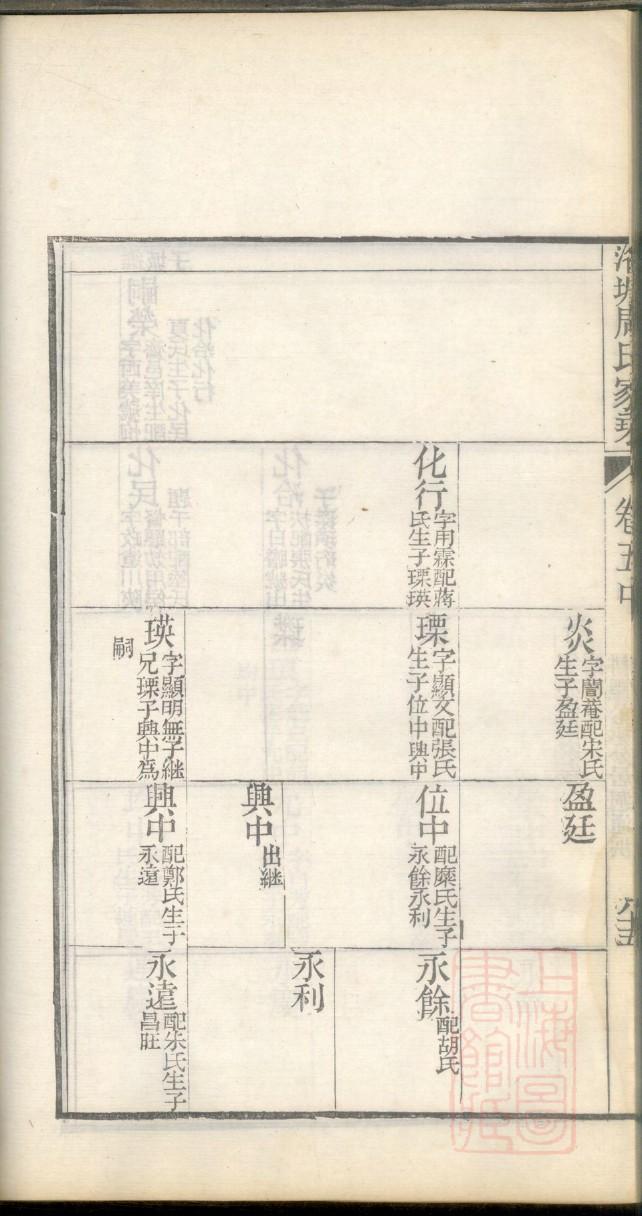 周氏家乘
卷五中
化行
字用霖配蔣
氏生子瑮瑛
炎
字闇菴配宋氏
生子盈廷
瑮
字顯文配張氏
生子位中興中
瑛
字顯明無子繼
兄瑮子興中為
嗣
盈廷
位中
配糜氏生子
永餘永利
興中
出繼
興中
配鄭氏生子
永遠
永餘
配胡氏
永利
永遠
配朱氏生子
昌旺
上海圖
書館藏